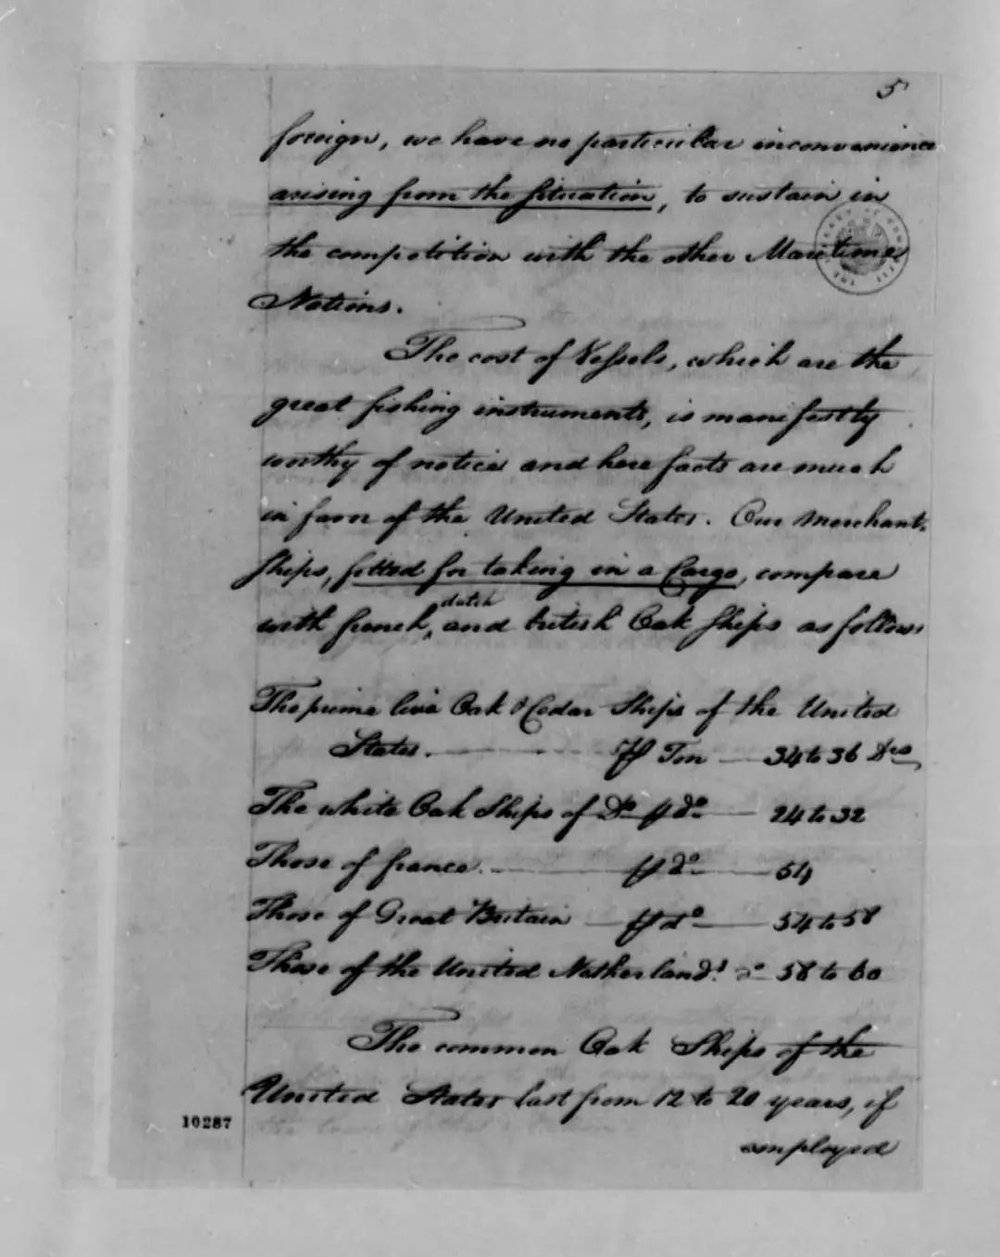 5
foreign, we have no particular inconvenience
arising from the situation, to sustain in
the competition with the other Maritime
Nations.
The cost of Vessels, which are the
great fishing instruments, is manifestly
worthy of notice and here facts are much
in favor of the United States. Our merchant-
ships, fitted for taking in a Cargo, compare
dutch
with french, and british Oak Ships as follows
The prime live Oak & Cedar Ships of the United
States. ⅌ Ton 34 to 36 Drs
The white Oak Ships of Do ⅌ do 24 to 32
Those of france. ⅌ do 54
Those of Great Britain ⅌ do 54 to 58
Those of the United Netherlands do 58 to 60
The common Oak Ships of the
United States last from 12 to 20 years, if
employed
10287